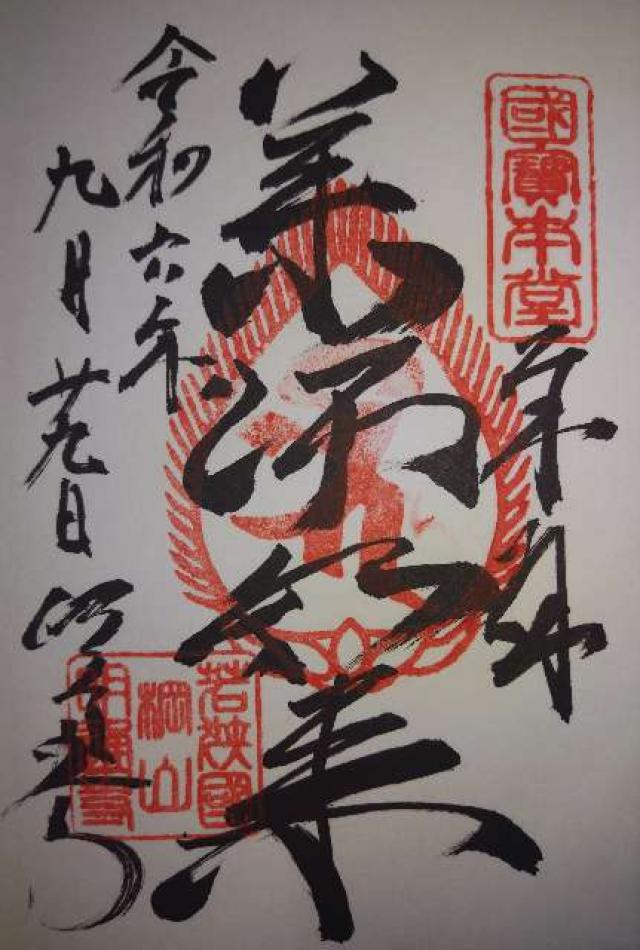 國寳本堂
奉拝
薬師如来
令和六年
九月廿九日
明通寺
若狹國
棡山
明通寺